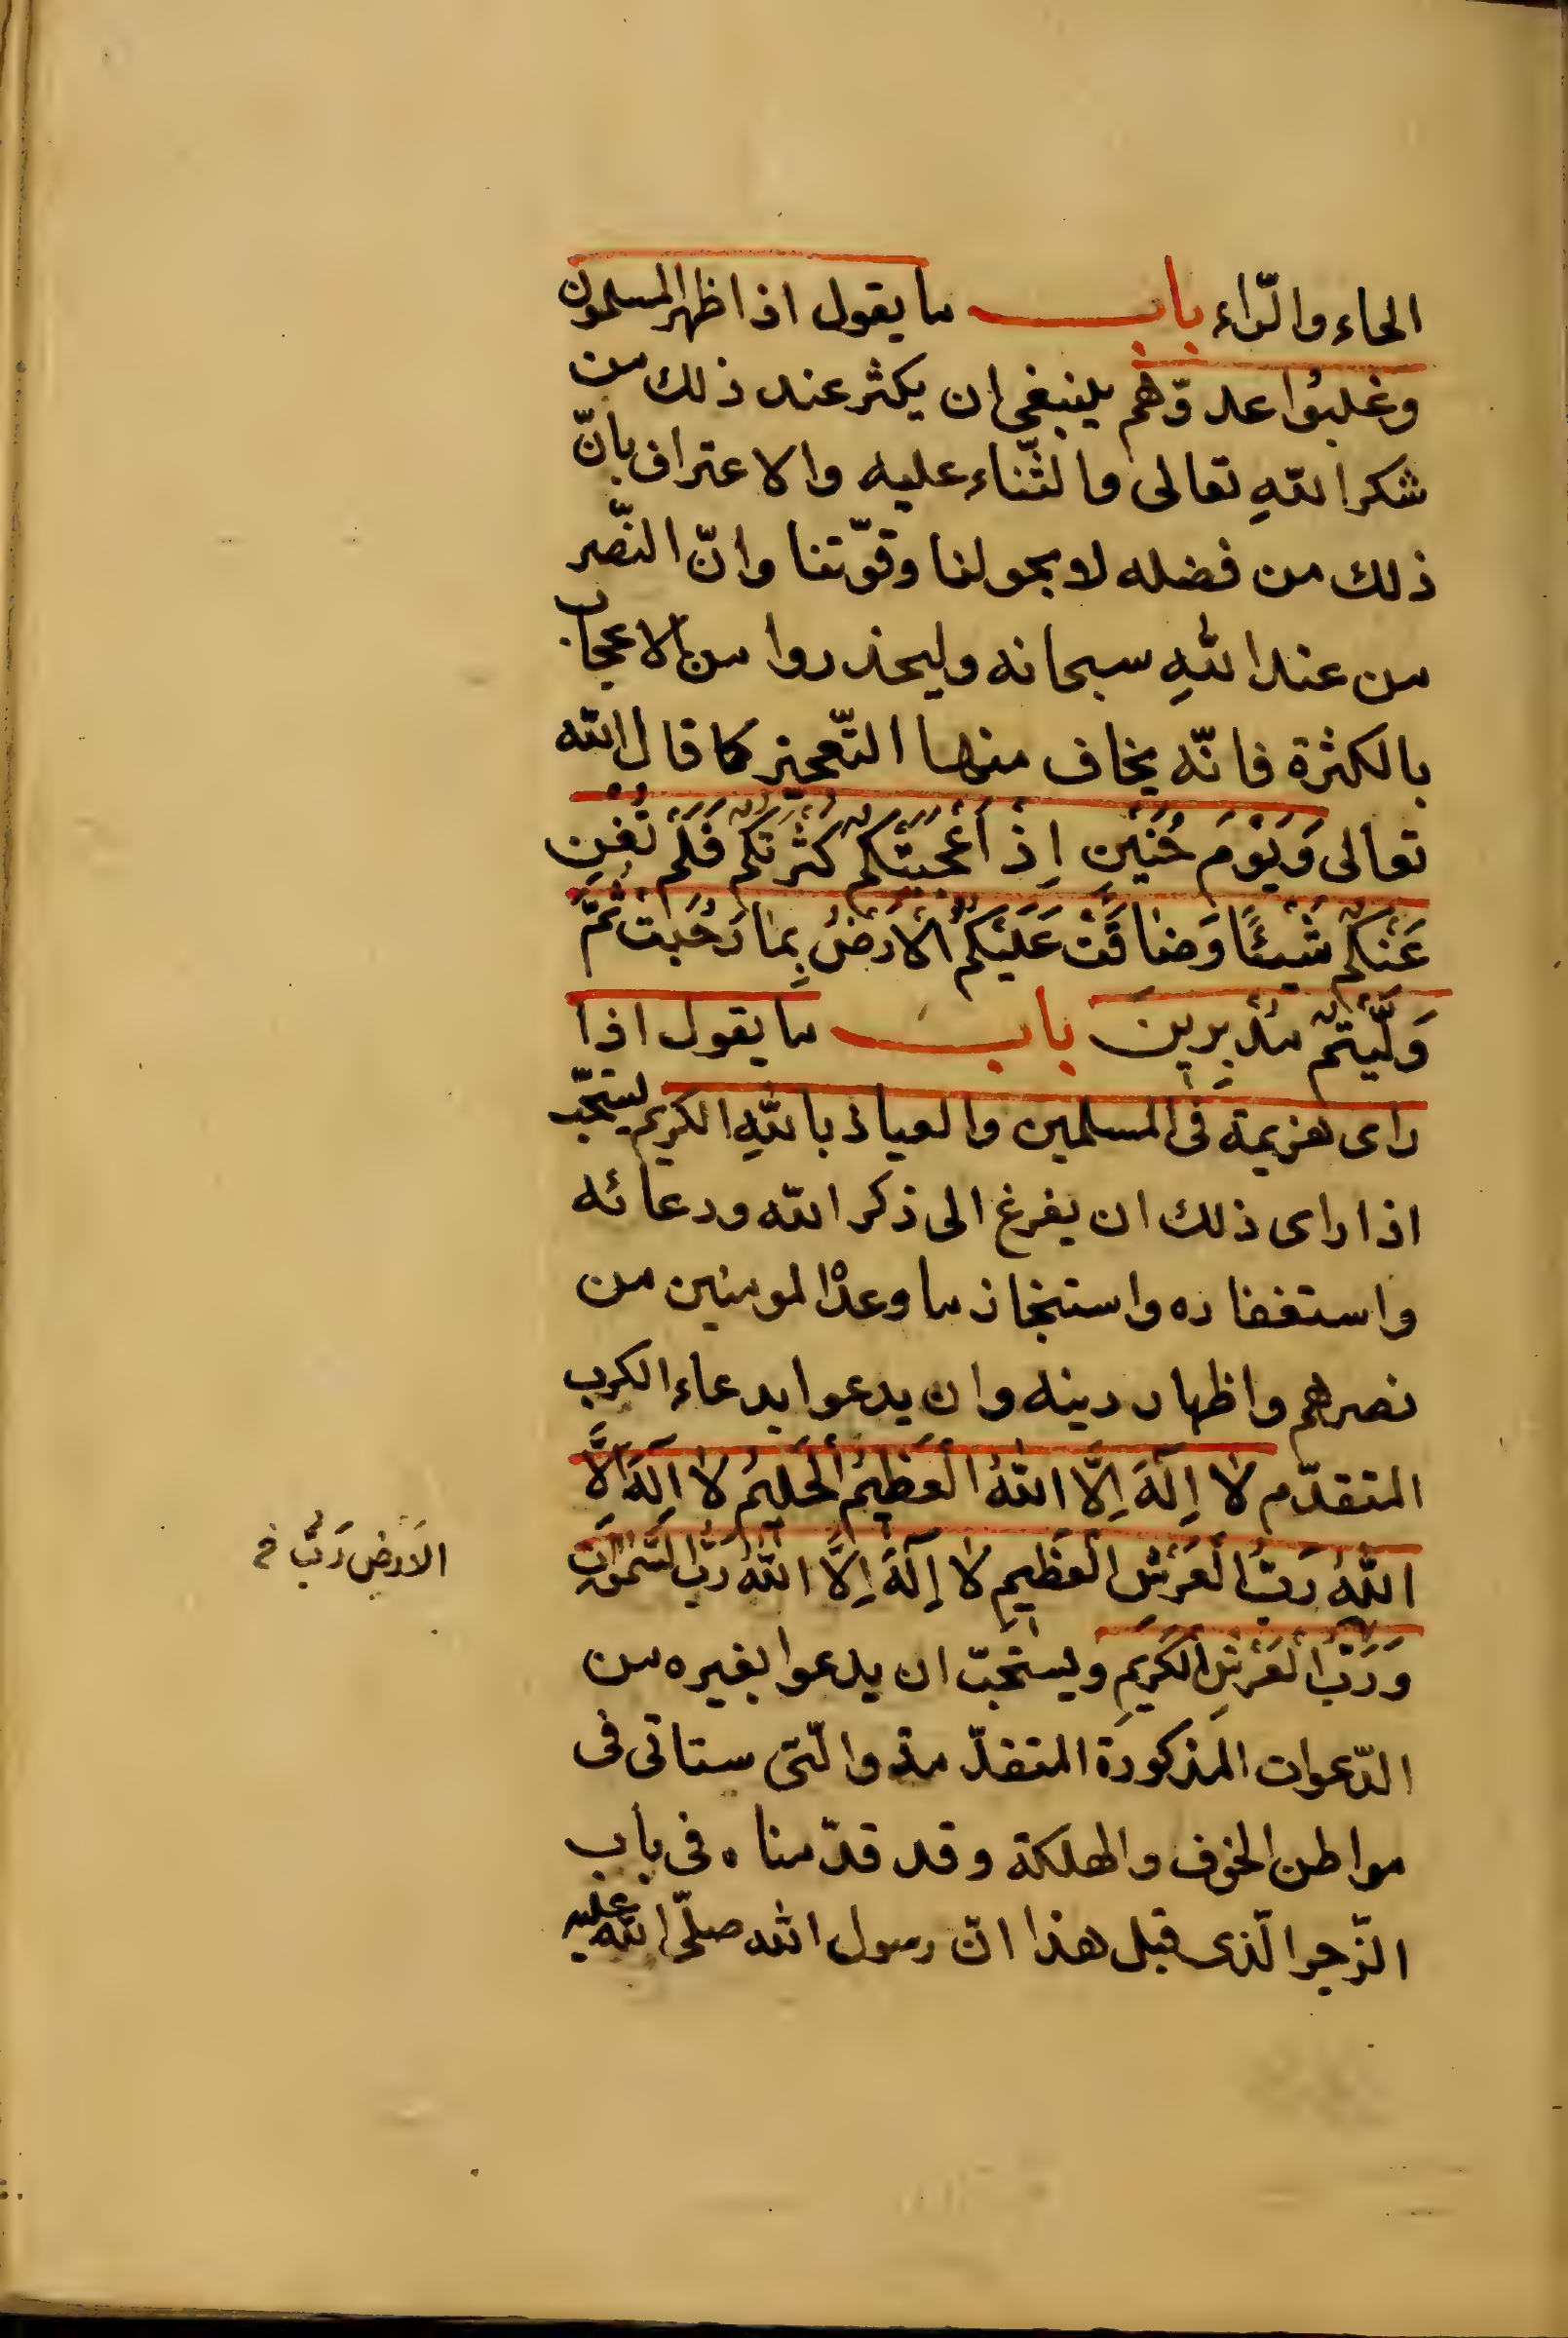 الحاء والرّاء باب ما يقول اذا ظهر المسلمون
وغلبوا عدوّهم ينبغى ان يكثر عند ذلك من
شكر اللهِ تعالى والثّناء عليه والاعتراف بانّ
ذلك من فضله لا بحولنا وقوّتنا وانّ النّصر
من عند اللهِ سبحانه وليحذروا من الاعجاب
بالكثرة فانّه يخاف منها التّعجيز كما قال الله
تعالى وَيَوْمَ حُنَيْنٍ اِذْ اَعْجَبَتْكُمْ كَثْرَتُكُمْ فَلَمْ تُغْنِ
عَنْكُمْ شَيْئًا وَضَاقَتْ عَلَيْكُمُ الْاَرْضُ بِمَا رَحُبَتْ ثُمَّ
وَلَّيْتُمْ مُدْبِرِينَ باب ما يقول اذا
راى هزيمة فى المسلمين والعياذ باللهِ الكريم يستحبّ
اذا راى ذلك ان يفرغ الى ذكر الله ودعائه
واستغفاره واستنجاز ما وعد المومنين من
نصرهم واظهار دينه وان يدعوا بدعاء الكرب
المتقدّم لَا اِلٰهَ اِلَّا اللهُ الْعَظِيمُ الْحَلِيمُ لَا اِلٰهَ اِلَّا
اللهُ رَبُّ الْعَرْشِ الْعَظِيمِ لَا اِلٰهَ اِلَّا اللهُ رَبُّ السَّمٰوَاتِ
الَارض رَبُّ خ
وَرَبُّ الْعَرْشِ الْكَرِيمِ ويستحبّ ان يدعوا بغيره من
الدّعوات المذكورة المتقدّمة والّتى ستاتى فى
مواطن الخوف والهلكة وقد قدّمناه فى باب
الرّجز الّذى قبل هذا انّ رسول الله صلّى الله عليه